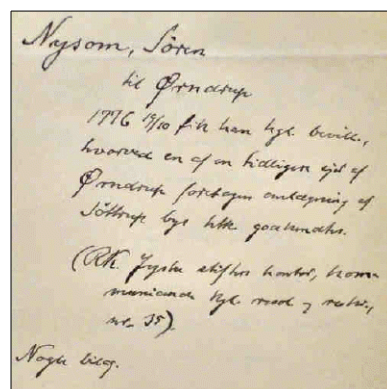 Nysom, Sören
til Ørndrup
1776 19/10 fik han kgl. bevill.,
hvorved en af en tidligere ejer af
Ørndrup foretagen omlægning af
Söttrup bys
(RK. Jyske stiftes kontor, kom-
municande kgl. resol. og
nr. 35).
Nogle bilag.